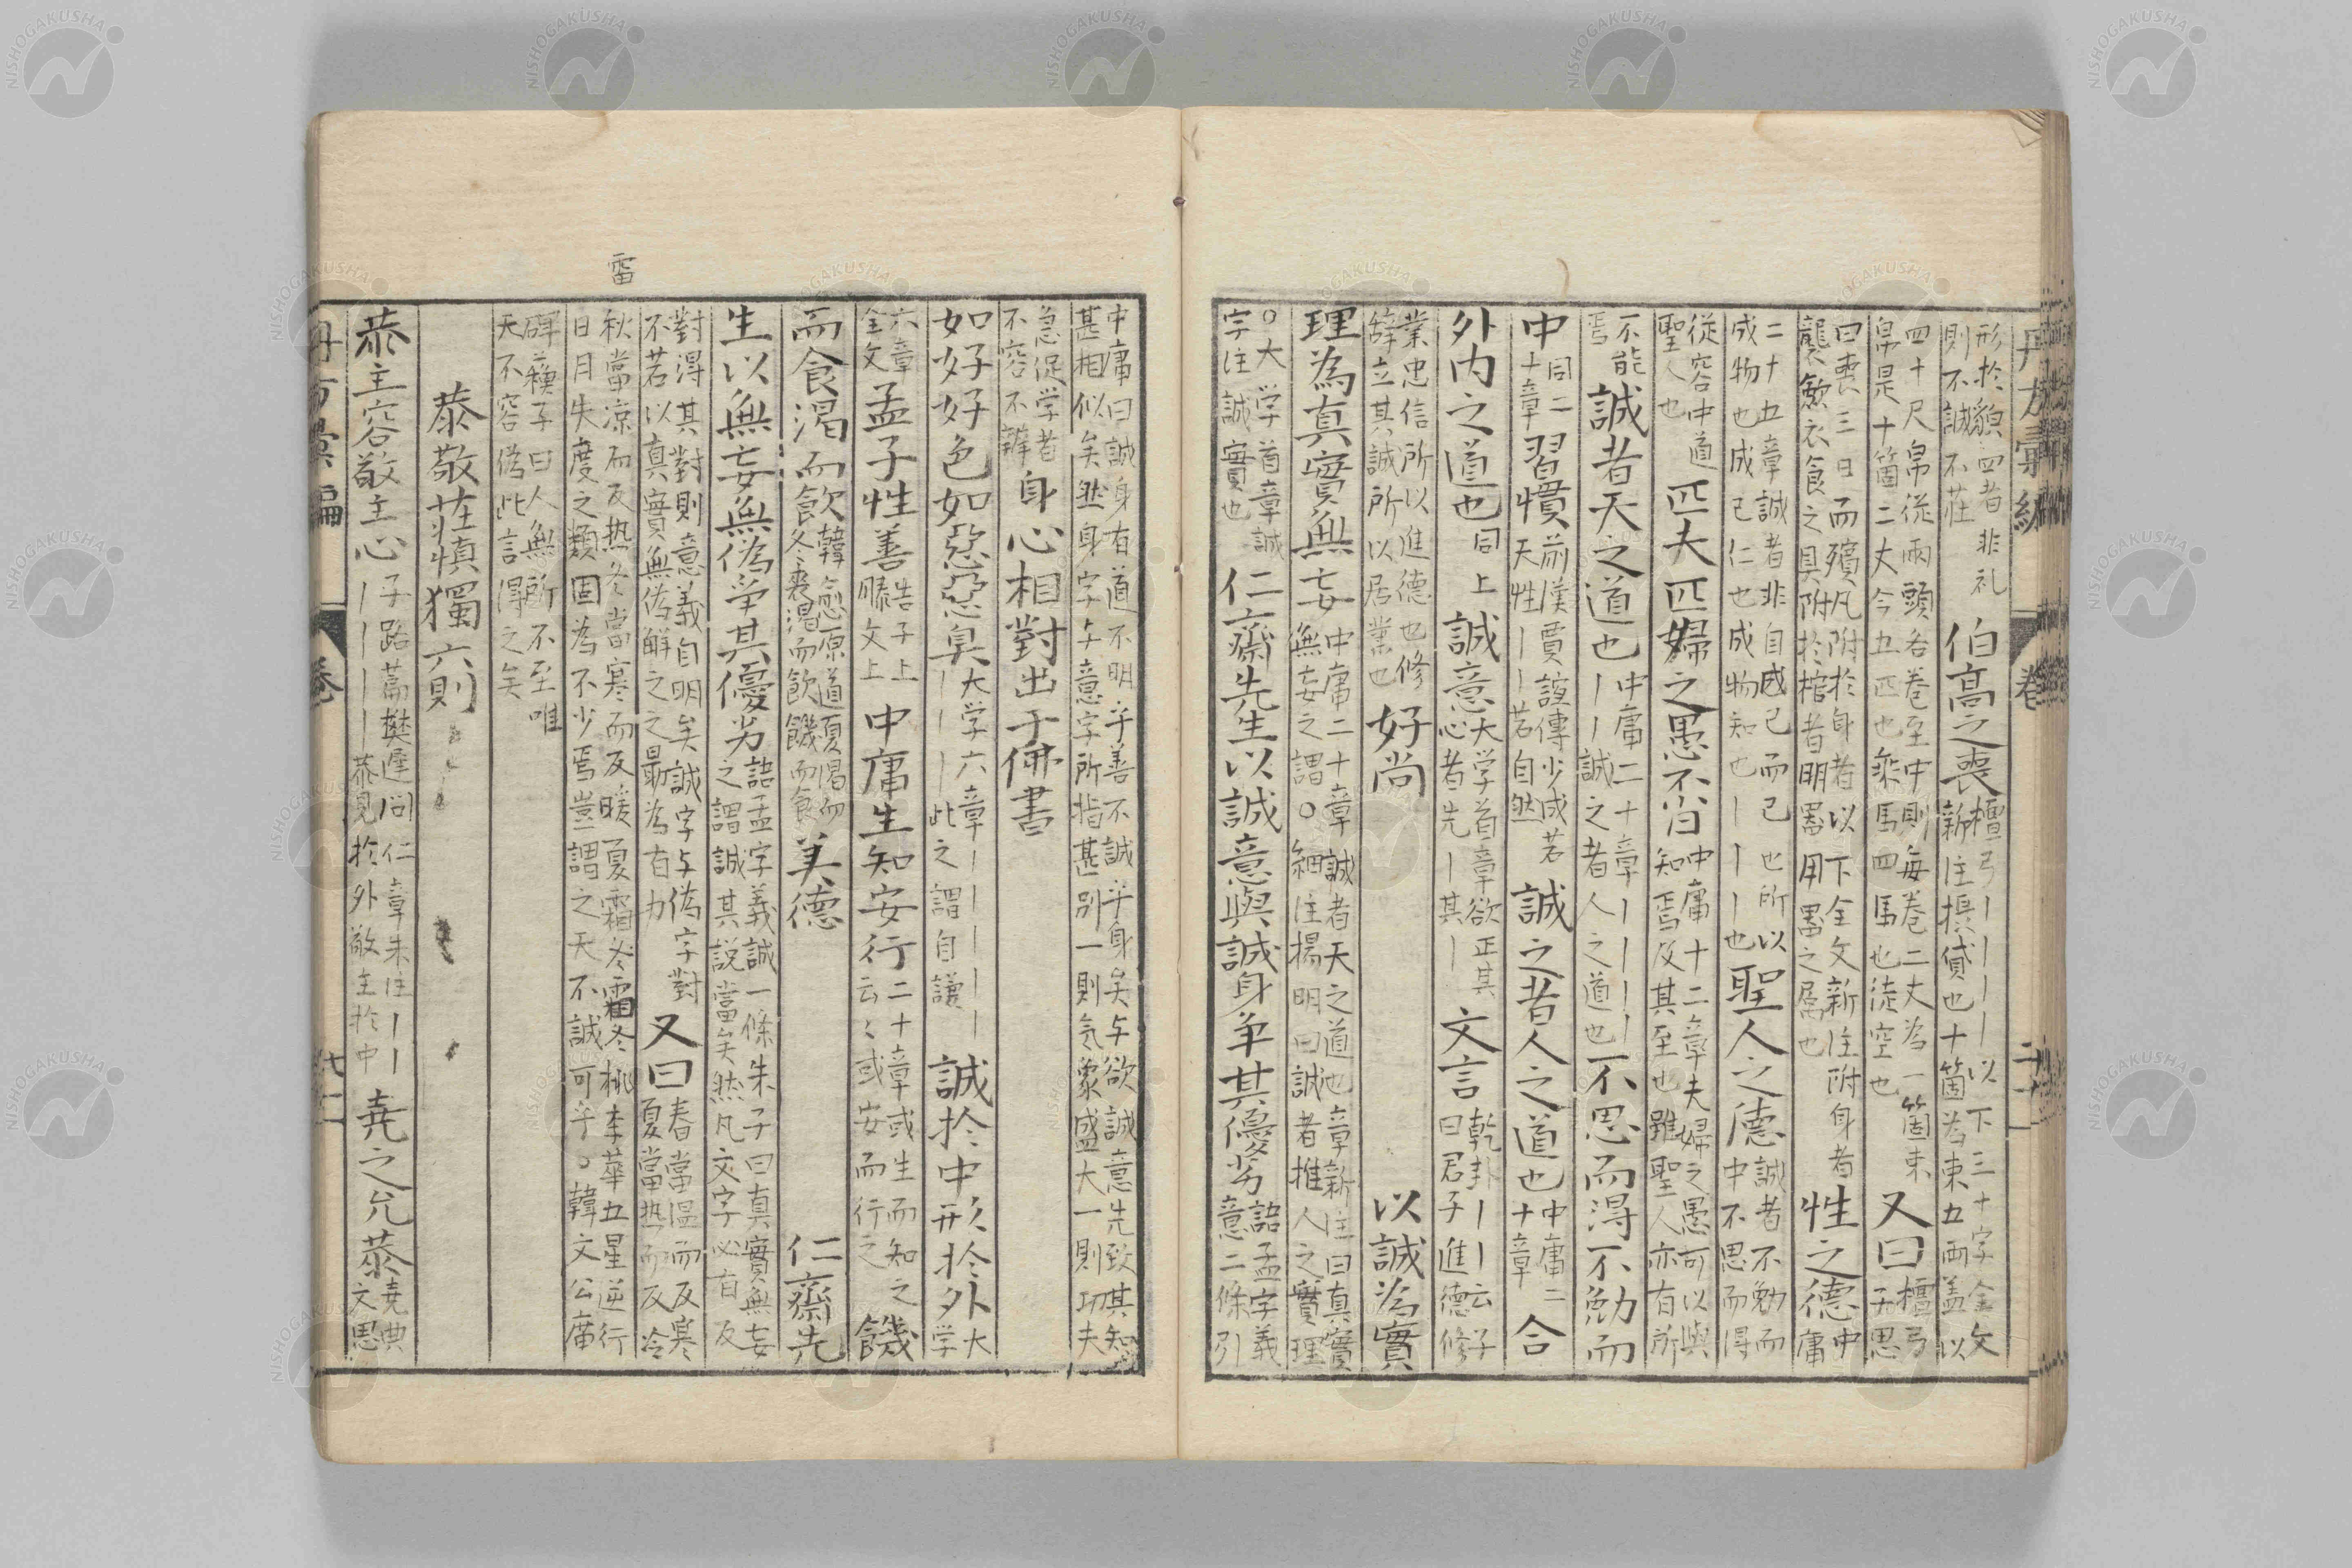 丹方彙編 卷
形於貌四者非礼
則不誠不莊
伯高之喪
檀弓｜｜｜｜以下三十字全文
新注摂貸也十箇為束五兩盖以
四十尺帛從兩頭各卷至中則每卷二丈為一箇束
帛是十箇二丈今五匹也乘馬四馬也徒空也
又曰
檀弓
子思
曰喪三日而殯凡附於身者以下全文新注附身者
襲斂衣食之具附於棺者明器用器之属也
性之德
中
庸
二十五章誠者非自成己而已也所以
成物也成己仁也成物知也｜｜｜也
聖人之德
誠者不勉而
中不思而得
從容中道
聖人也
匹夫匹婦之愚不肖
中庸十二章夫婦之愚可以與
知焉及其至也雖聖人亦有所
不能
焉
誠者天之道也
中庸二十章｜｜｜｜
｜｜誠之者人之道也
不思而得不勉而
中
同二
十章
習慣
前漢賈誼傳少成若
天性｜｜若自然
誠之者人之道也
中庸二
十章
合
外内之道也
同上
誠意
大学首章欲正其
心者先｜其｜
文言
乾卦｜｜云子
曰君子進德修
業忠信所以進德也修
辞立其誠所以居業也
好尚 以誠為實
理為真實無妄
中庸二十章誠者天之道也章新注曰真實
無妄之謂〇細注楊明曰誠者推人之實理
〇大学首章誠
字注誠實也
仁齋先生以誠意與誠身争其優劣
語孟字義
意二條引
中庸曰誠身有道不明乎善不誠乎身矣与欲誠意先致其知
甚相似矣然身字与意字所指甚別一則気象盛大一則功夫
急促学者
不容不辨
身心相對出于佛書
如好好色如惡惡臭
大学六章｜｜｜｜｜
｜｜｜｜此之謂自謙
誠於中形於外
大
学
六章
全文
孟子性善
告子上
滕文上
中庸生知安行
二十章或生而知之
云々或安而行之
饑
而食渴而飲
韓愈原道夏渇而
飲冬裘渴而飲饑而食
美德 仁齋先
生以無妄無偽争其優劣
語孟字義誠一條朱子曰真實無妄
之謂誠其説當矣然凡文字必有反
對得其對則意義自明矣誠字与偽字對
不若以真實無偽解之之最為有力
又曰
春當温而反寒
夏當热而反冷
秋當凉而反热冬當寒而反暖夏霜冬霜冬桃李華五星逆行
日月失度之類固為不少焉豈謂之天不誠可乎〇韓文公廟
雷
碑蘓子曰人無所不至唯
天不容偽此言得之矣
恭敬莊慎獨六則
恭主容敬主心
子路篇樊遲问仁章朱注｜｜
｜｜｜｜恭見於外敬主於中
堯之允恭
堯典
文思
丹方彙編 卷